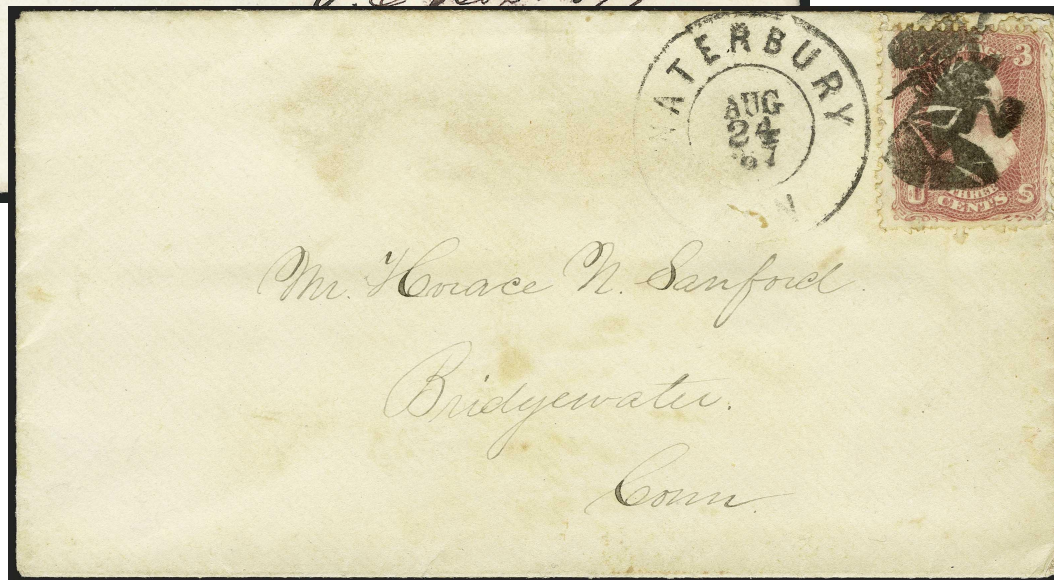 WATERBURY
AUG
24
'67
3
THREE
CENTS
U S
Mr. Horace N. Sanford.
Bridgewater.
Conn.